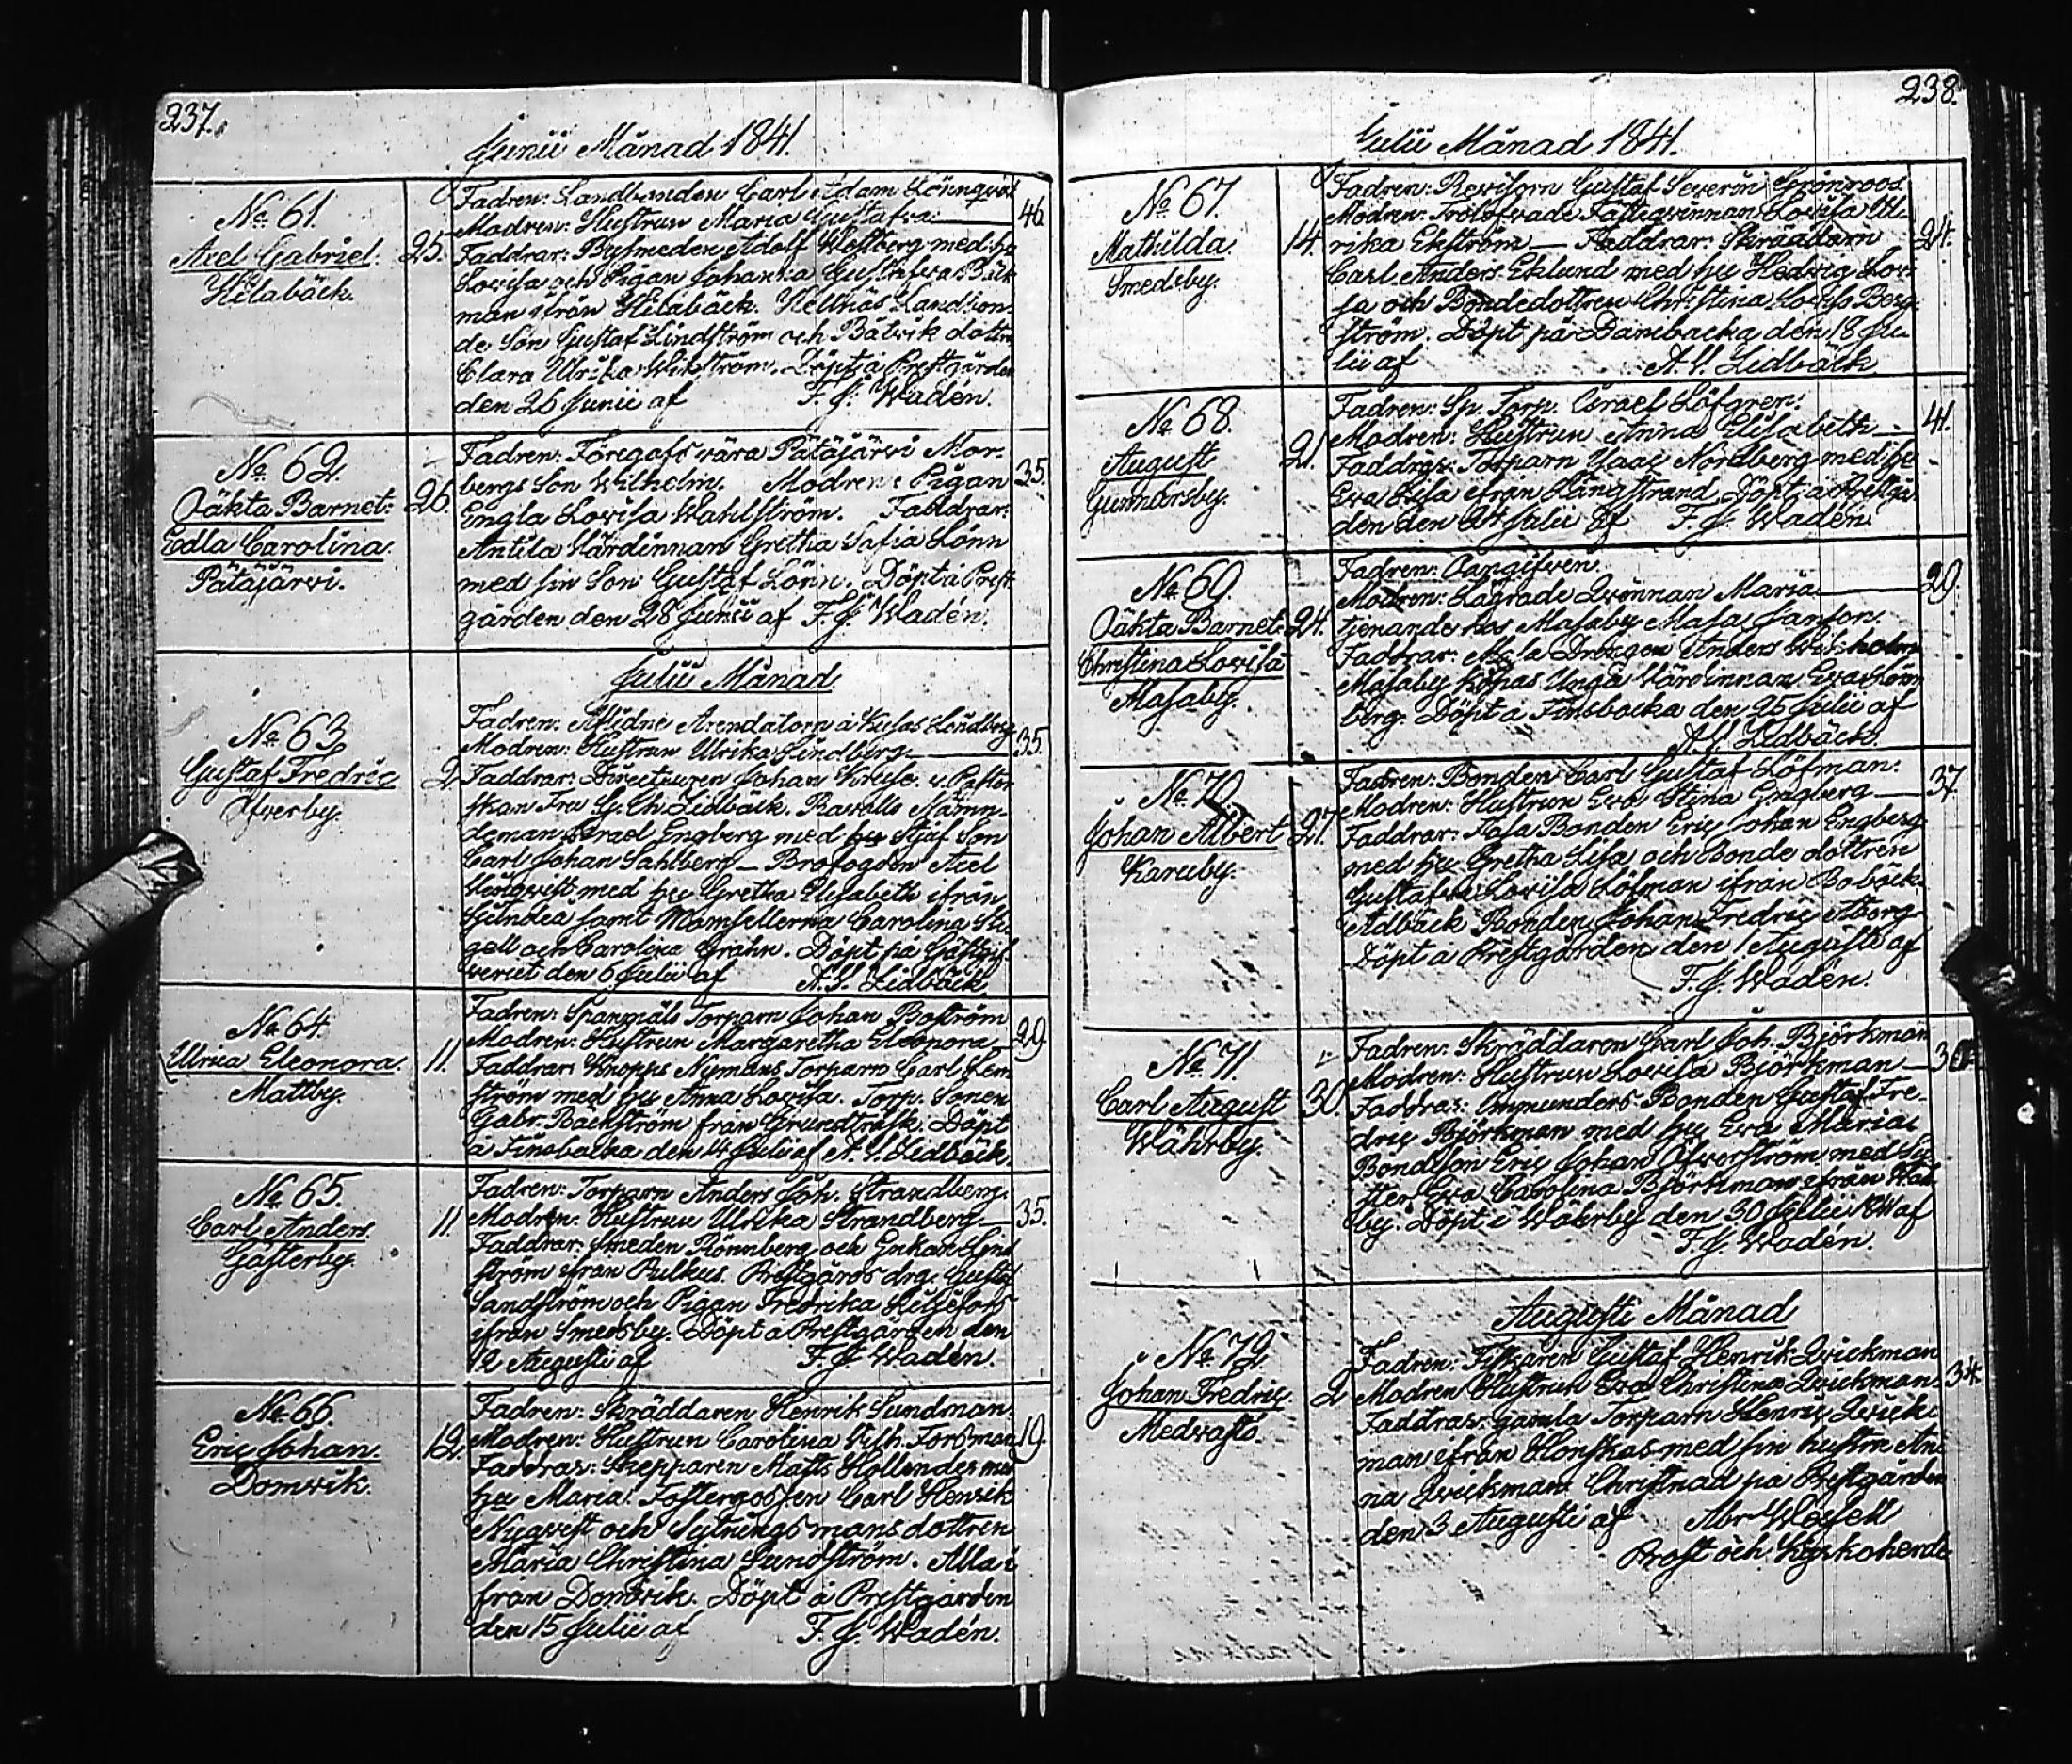 237.
Junii Månad 1841.
No 61.
Axel Gabriel.
Hilabäck.
25.
Fadren: Landbonden Carl Adam Lönnqvist
Modren: Hustrun Maria Gustafva.
46.
Faddrar: Bysmeden Adolf Westberg med hu
Lovisa och Pigan Johanna Gustafva Bäck
man ifrån Hilabäck. Landbon
de Son Gustaf Lindström och Båtvik dottr
Clara Ulrika Wikström. Döpt å Prestgården
den 26 Junii af F. J. Wadén.
No 62.
Oäkta Barnet:
Edla Carolina.
Pätäjärvi.
26.
Fadren: Föregafs vara Pätäjärvi Mor-
bergs Son Wilhelm. Modren: Pigan
35.
Engla Lovisa Wahlström. Faddrar:
Antila Värdinnan Gretha Safia Lönn
med sin Son Gustaf Lönn. Döpt å Prest-
gården den 28 Junii af F. J. Wadén.
Julii Månad
No 63.
Gustaf Fredric
Öfverby.
2.
Fadren: Aflidne Arendatorn å Lindberg
Modren: Hustrun Ulrika Lindberg
35.
Faddrar: Directeuren Johan v. Pastor
skan Fru Lidbäck. Nämn-
deman Israel Engberg med Styf Son
Carl Johan Sahlberg Brofogden Axel
med hu Gretha Elisabeth ifrån
samt Mamsellerna Carolina
gell och Carolina Grahn. Döpt på Gästgif-
veriet den 6 Julii af A. S. Lidbäck
No 64.
Ulrica Eleonora.
Mattby.
11.
Fadren: Torparn Johan Boström
Modren: Hustrun Margaretha Eleonora
29.
Faddrar: Knopps Nymans Torparn Carl Lem
ström med hu Anna Lovisa. Torp. Sonen
Gabr. Bäckström från Grundträsk. Döpt
å Finsbacka den 14 Julii af A. S. Lidbäck.
No 65.
Carl Anders.
Gästerby.
11.
Fadren: Torparn Anders Joh. Strandberg.
Modren: Hustrun Ulrika Strandberg
35.
Faddrar: Smeden Rönnberg och Enkan Lind
ström ifrån Pulkus. Prestgårds drg. Gustaf
Sandström och Pigan Fredrika
ifrån Smedsby. Döpt å Prestgården den
12 Augusti af F. J. Wadén.
No 66.
Eric Johan.
Domvik.
12.
Fadren: Skräddaren Henrik Sundman.
Modren: Hustrun Carolina Wilh. Forsman
19.
Faddrar: Skepparen Matts Hollender med
hu Maria. Fostergossen Carl Henrik
Nyqvist och Sytningsmans dottren
Maria Christina Sundström. Alla i
från Domvik. Döpt å Prestgården
den 15 Julii af F. J. Wadén.
238.
Julii Månad 1841.
No 67.
Mathilda.
Smedsby.
14.
Fadren: Revisorn Gustaf Severin Grönroos.
Modren: Trolofvade Fattigqvinnan Lovisa Ul-
rika Ekström Faddrar: Skräddarn
24.
Carl Anders Eklund med hu Hedvig Lovi
sa och Bondedottren Christina Lovisa Berg-
ström. Döpt på Dansbacka den 18 Ju
lii af A. S. Lidbäck
No 68.
August
Gunnarsby.
21.
Fadren: Sp. Torp. Israel Löfgren:
Modren: Hustrun Anna Elisabeth
41.
Faddrar: Torparn Ysaac Nordberg med hu
Eva Lisa ifrån Långstrand Döpt å Prestgår
den den 24 Julii af F. J. Wadén.
No 69.
Oäkta Barnet:
Christina Lovisa
Masaby.
24.
Fadren: Oangifven.
Modren: Lägrade Qvinnan Maria
29.
tjenande hos Masaby Masas Janson.
Faddrar: Masa Drängen Anders Wikholm
Masaby Köpas Unga Värdinnan Eva Lönn
berg. Döpt å Finsbacka den 25 Julii af
A. S. Lidbäck.
No 70.
Johan Albert
Karuby.
27.
Fadren: Bonden Carl Gustaf Löfman:
Modren: Hustrun Eva Stina Engberg
37.
Faddrar: Bonden Eric Johan Engberg
med hu Gretha Lisa och Bonde dottren
Gustafva Lovisa Löfman ifrån Bobäck.
Adbäck Bonden Johan Fredric Åberg.
Döpt å Prestgården den 1 Augusti af
F. J. Wadén.
No 71.
Carl August
Währby.
30.
Fadren: Skräddaren Carl Joh. Björkman
Modren: Hustrun Lovisa Björkman
Faddrar: Ingmunders Bonden Gustaf Fre-
dric Björkman med hu Eva Maria:
Bondeson Eric Johan Öfverström med Sy-
ster Eva Carolina Björkman ifrån Wåh-
by. Döpt i Währby den 30 Julii af
F. J. Wadén.
Augusti Månad
No 72.
Johan Fredric
Medvastö.
2
Fadren: Fiskaren Gustaf Henrik Qvickman
Modren Hustrun Eva Christina Qvickman.
34.
Faddrar: gamla Torparn Henric Qvick-
man ifrån Honskas med sin hustru An
na Qvickman Christnad på Prestgården
den 3 Augusti af
Prost och Kyrkoherde